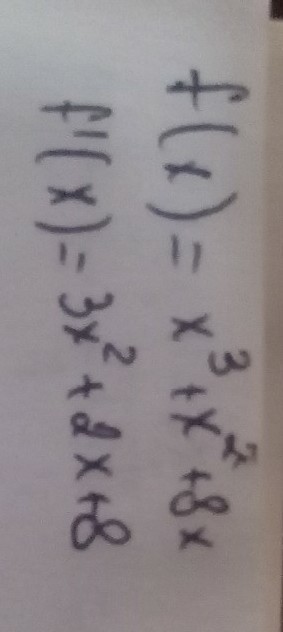 f(x) = x³ + x² + 8x
f'(x) = 3x² + 2x + 8